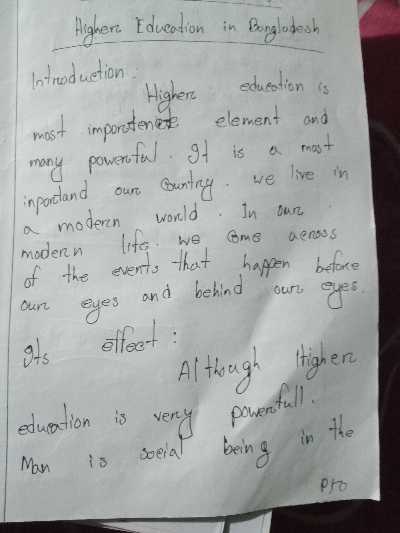 Higherc Education in Bangladesh
Introduction:
Higherc education is
most imporctence element and
many powercful. It is a most
inporctand ourc Country. we live in
a moderzn world. In ourc
moderzn life. we Come across
of the events that happen beforce
ourc eyes and behind ourc eyes.
Its effect:
Although Higherc
education is very powercfull.
Man is social being in the
PTO